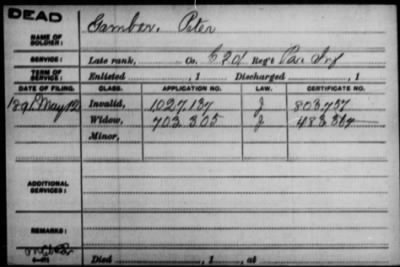 DEAD
NAME OF SOLDIER: Gamber, Peter
SERVICE: Late rank, Co. C 201 Reg't Pa. Inf
TERM OF SERVICE: Enlisted , 1 Discharged , 1
DATE OF FILING. CLASS. APPLICATION NO. LAW. CERTIFICATE NO.
1891 May 12 Invalid, 1027,137 J 803,757
Widow, 703,305 J 483,364
Minor,
ADDITIONAL SERVICES:
REMARKS:
Died , 1 , at